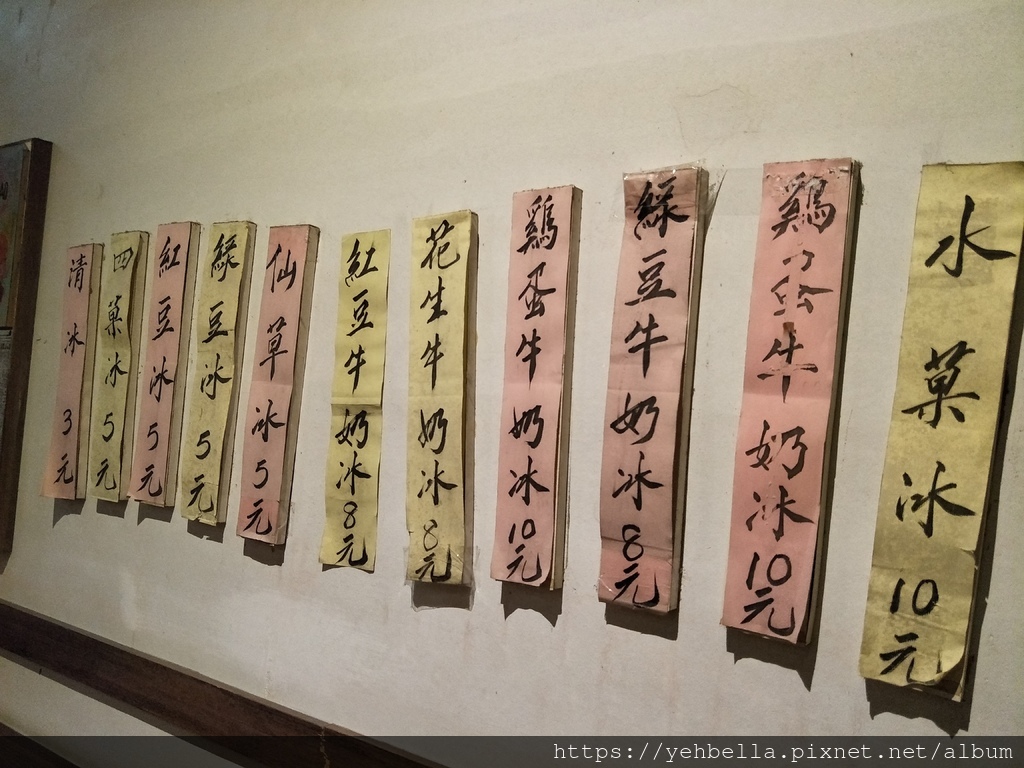 水菓冰10元
鷄蛋牛奶冰10元
綠豆牛奶冰8元
鷄蛋牛奶冰10元
花生牛奶冰8元
紅豆牛奶冰8元
仙草冰5元
綠豆冰5元
紅豆冰5元
四菓冰5元
清冰3元
https://yehbella.pixnet.net/album